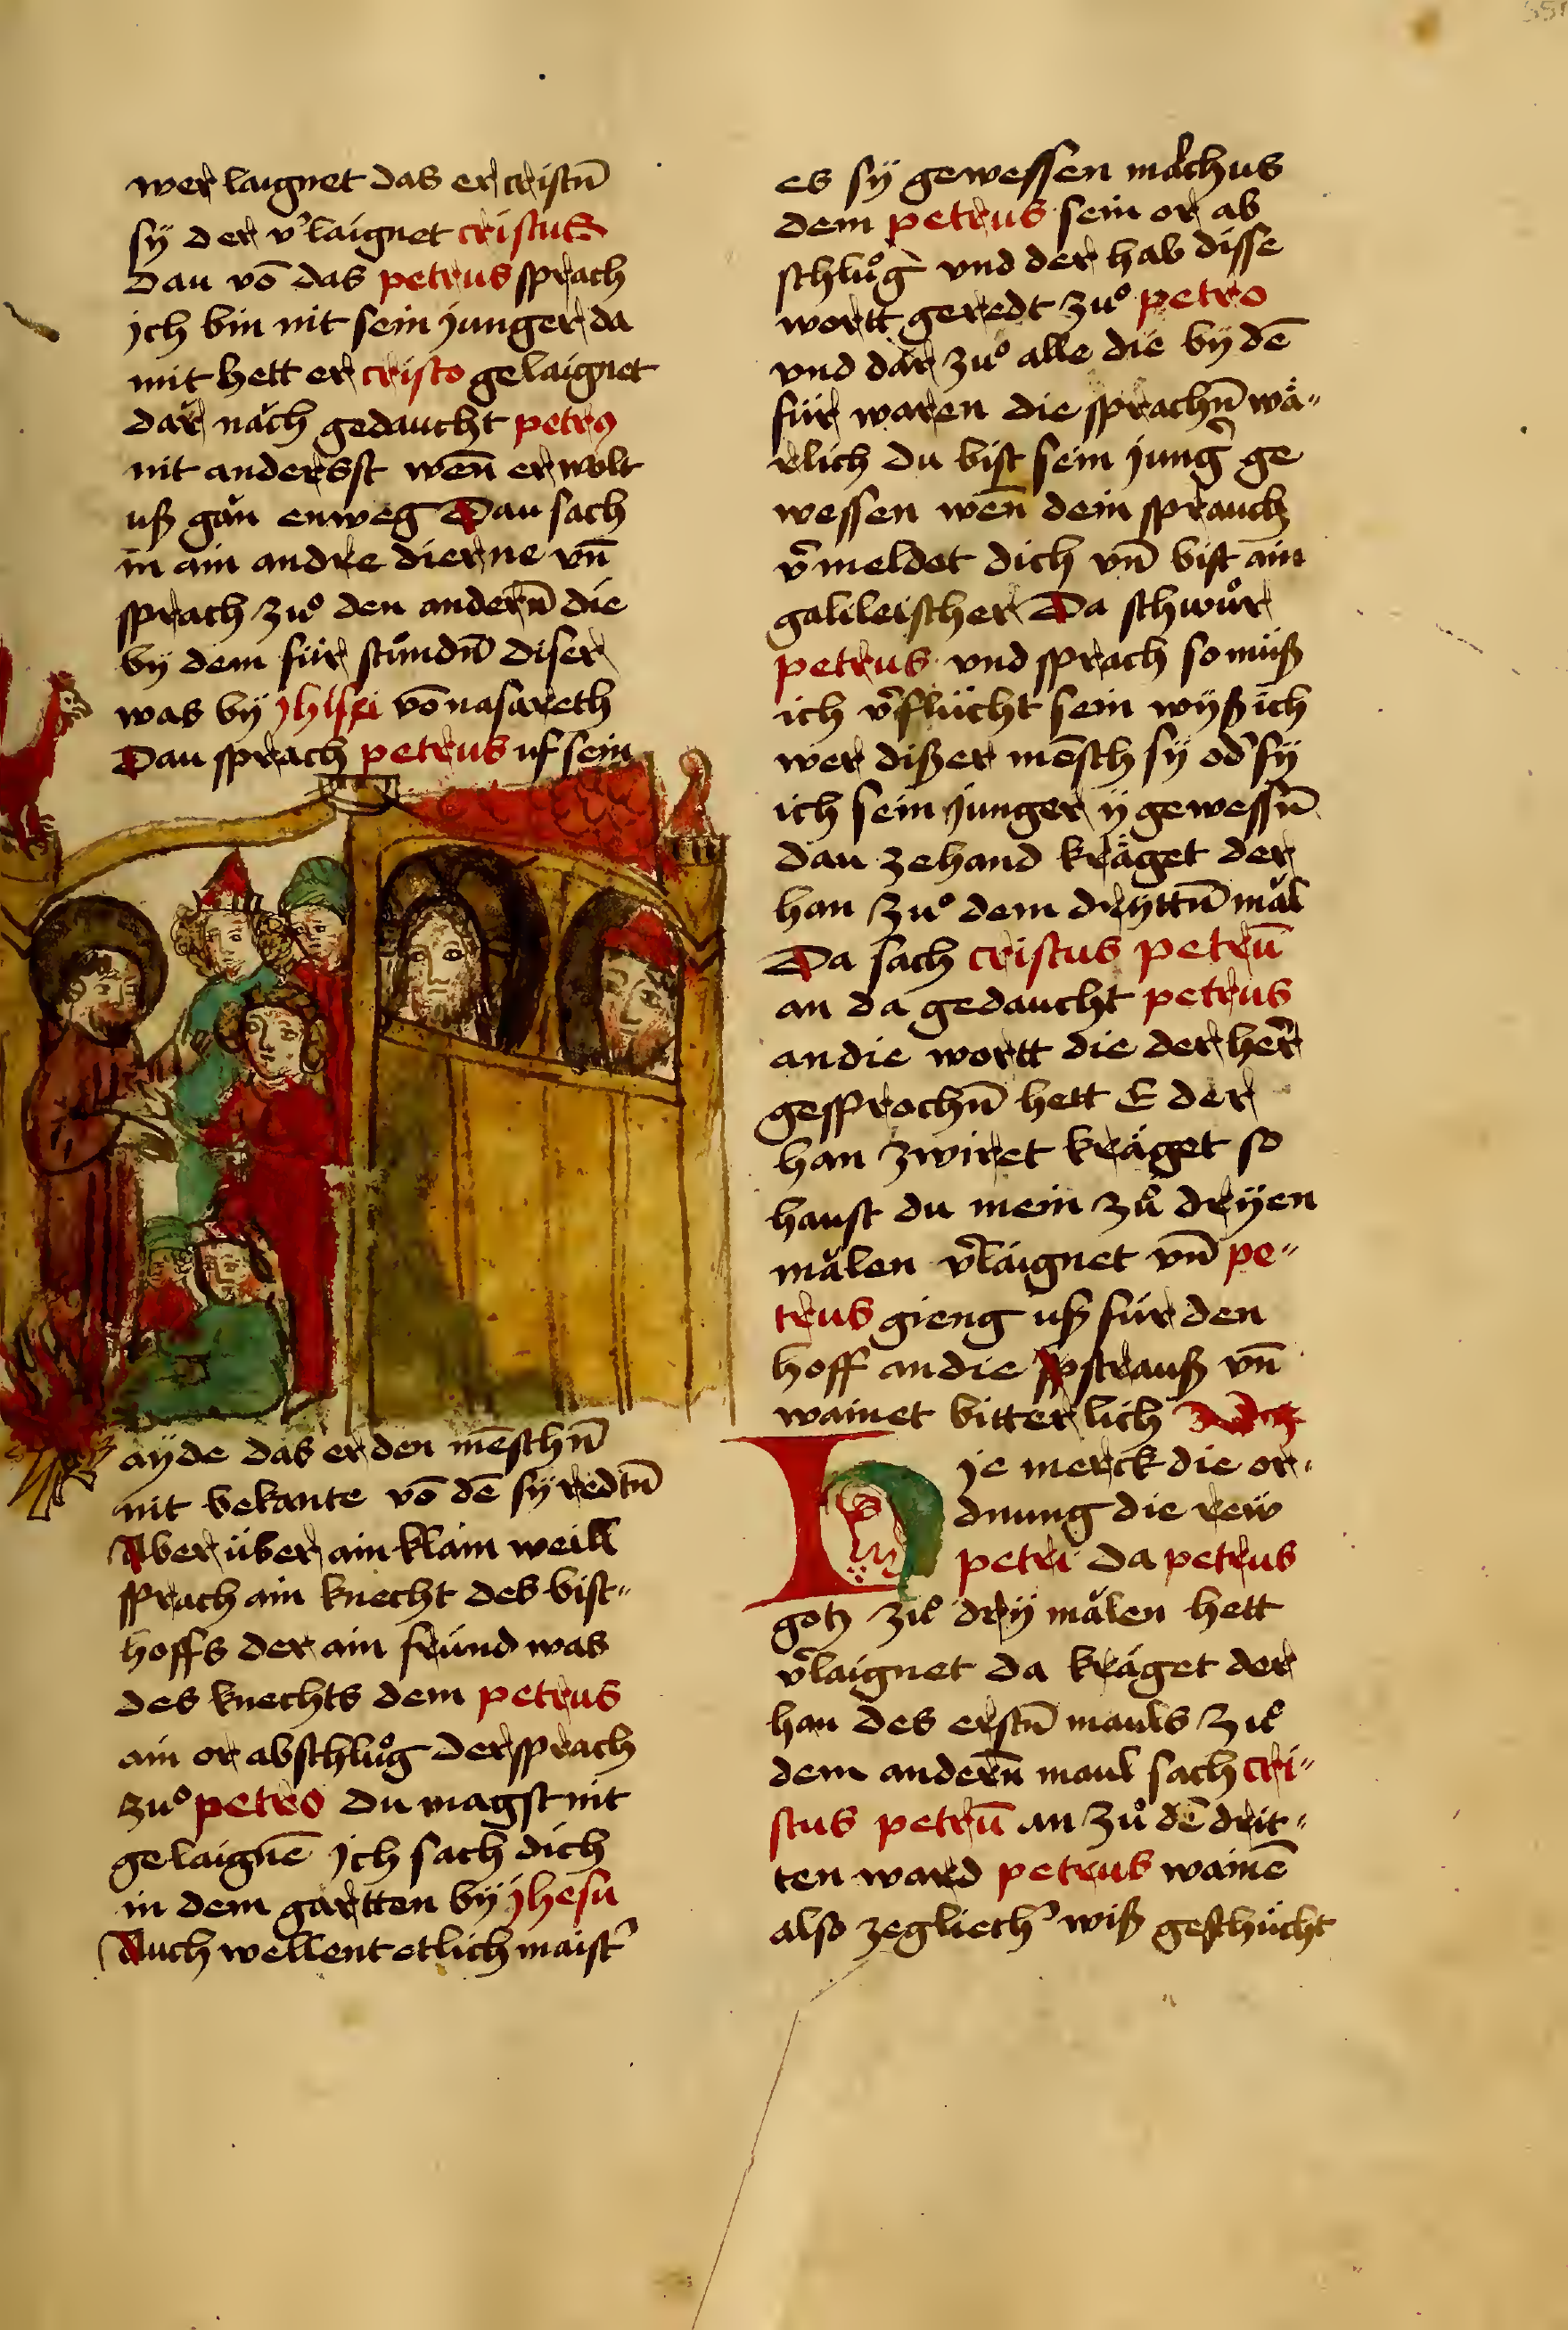 wer laignet das er cristn̄
sÿ der v̓laignet cristus
Dau vō das petrus sprach
jch bin nit sein junger da
mit hett er cristo gelaignet
dăr năch gedaucht petrꝰ
nit andersst wen̄ er wolt
uß găn enweg Dau sach
in ain andre dierne vn̄
sprach zuͦ den andern̄ die
by dem für stuͦndn̄ diser
was bÿ vō nasareth
Dau sprach petrus uf sein
aÿde das er den mēschn̄
nit bekante vō dē sÿ redtn̄
Aber über ain klain weill
sprach ain knecht des bist〃
hoffs der ain fründ was
des knechts dem petrus
ain or abschluͦg der sprach
zuͦ petro Du magst nit
gelaignē jch sach dich
in dem gartten bÿ jhesu
Auch wellent etlich maist̓
es sÿ gewessen malchus
dem petrus sein or ab
schluͦg und der hab disse
wortt geredt zuͦ petro
vnd dăr zuͦ alle die bÿ dē
für waren die sprachn̄ wä〃
rlich du bist sein jung̓ ge
wessen wen̄ dein sprauch
v̓meldet dich vn̄ bist ain
galileischer Da schwuͦr
petrus vnd sprach so müß
ich v̓flücht sein wÿß ich
wer dißer mēsch sÿ od̓ sÿ
ich sein junger ÿ gewessn̄
dau zehand kräget der
han zuͦ dem drÿttn̄ măl
Da sach cristus petrū
an da gedaucht petrus
an die wortt die der her̓
gesprochn̄ hett E der
han zwiret kräget so
haust du mein zuͦ drÿen
mălen v̓laignet vn̄ pe〃
trus gieng uß für den
hoff an die strauß vn̄
wainet bitterlich
Hje merck die or〃
dnung die rew
petri da petrus
gotz zuͦ drÿ mălen hett
v̓laignet da kräget der
han des erstn̄ mauls zuͦ
dem andern̄ maul sach cri〃
stus petrū an zuͦ dē drit〃
ten ward petrus wainē
also zegliech̓ wiß geschücht